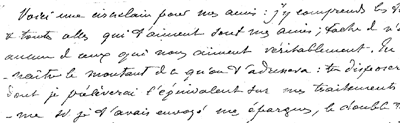 Voici une circulaire pour nos amis : j'y comprends les
& toutes celles qui t'aiment sont nos amies ; tâche d
aucun d ceux qui nous aiment véritablement.
naître le montant d qu'on t'adressera : tu disposer
dont je prélèverai l'équivalent sur mes traitements
me si je t'avais envoyé mes épargnes, le double